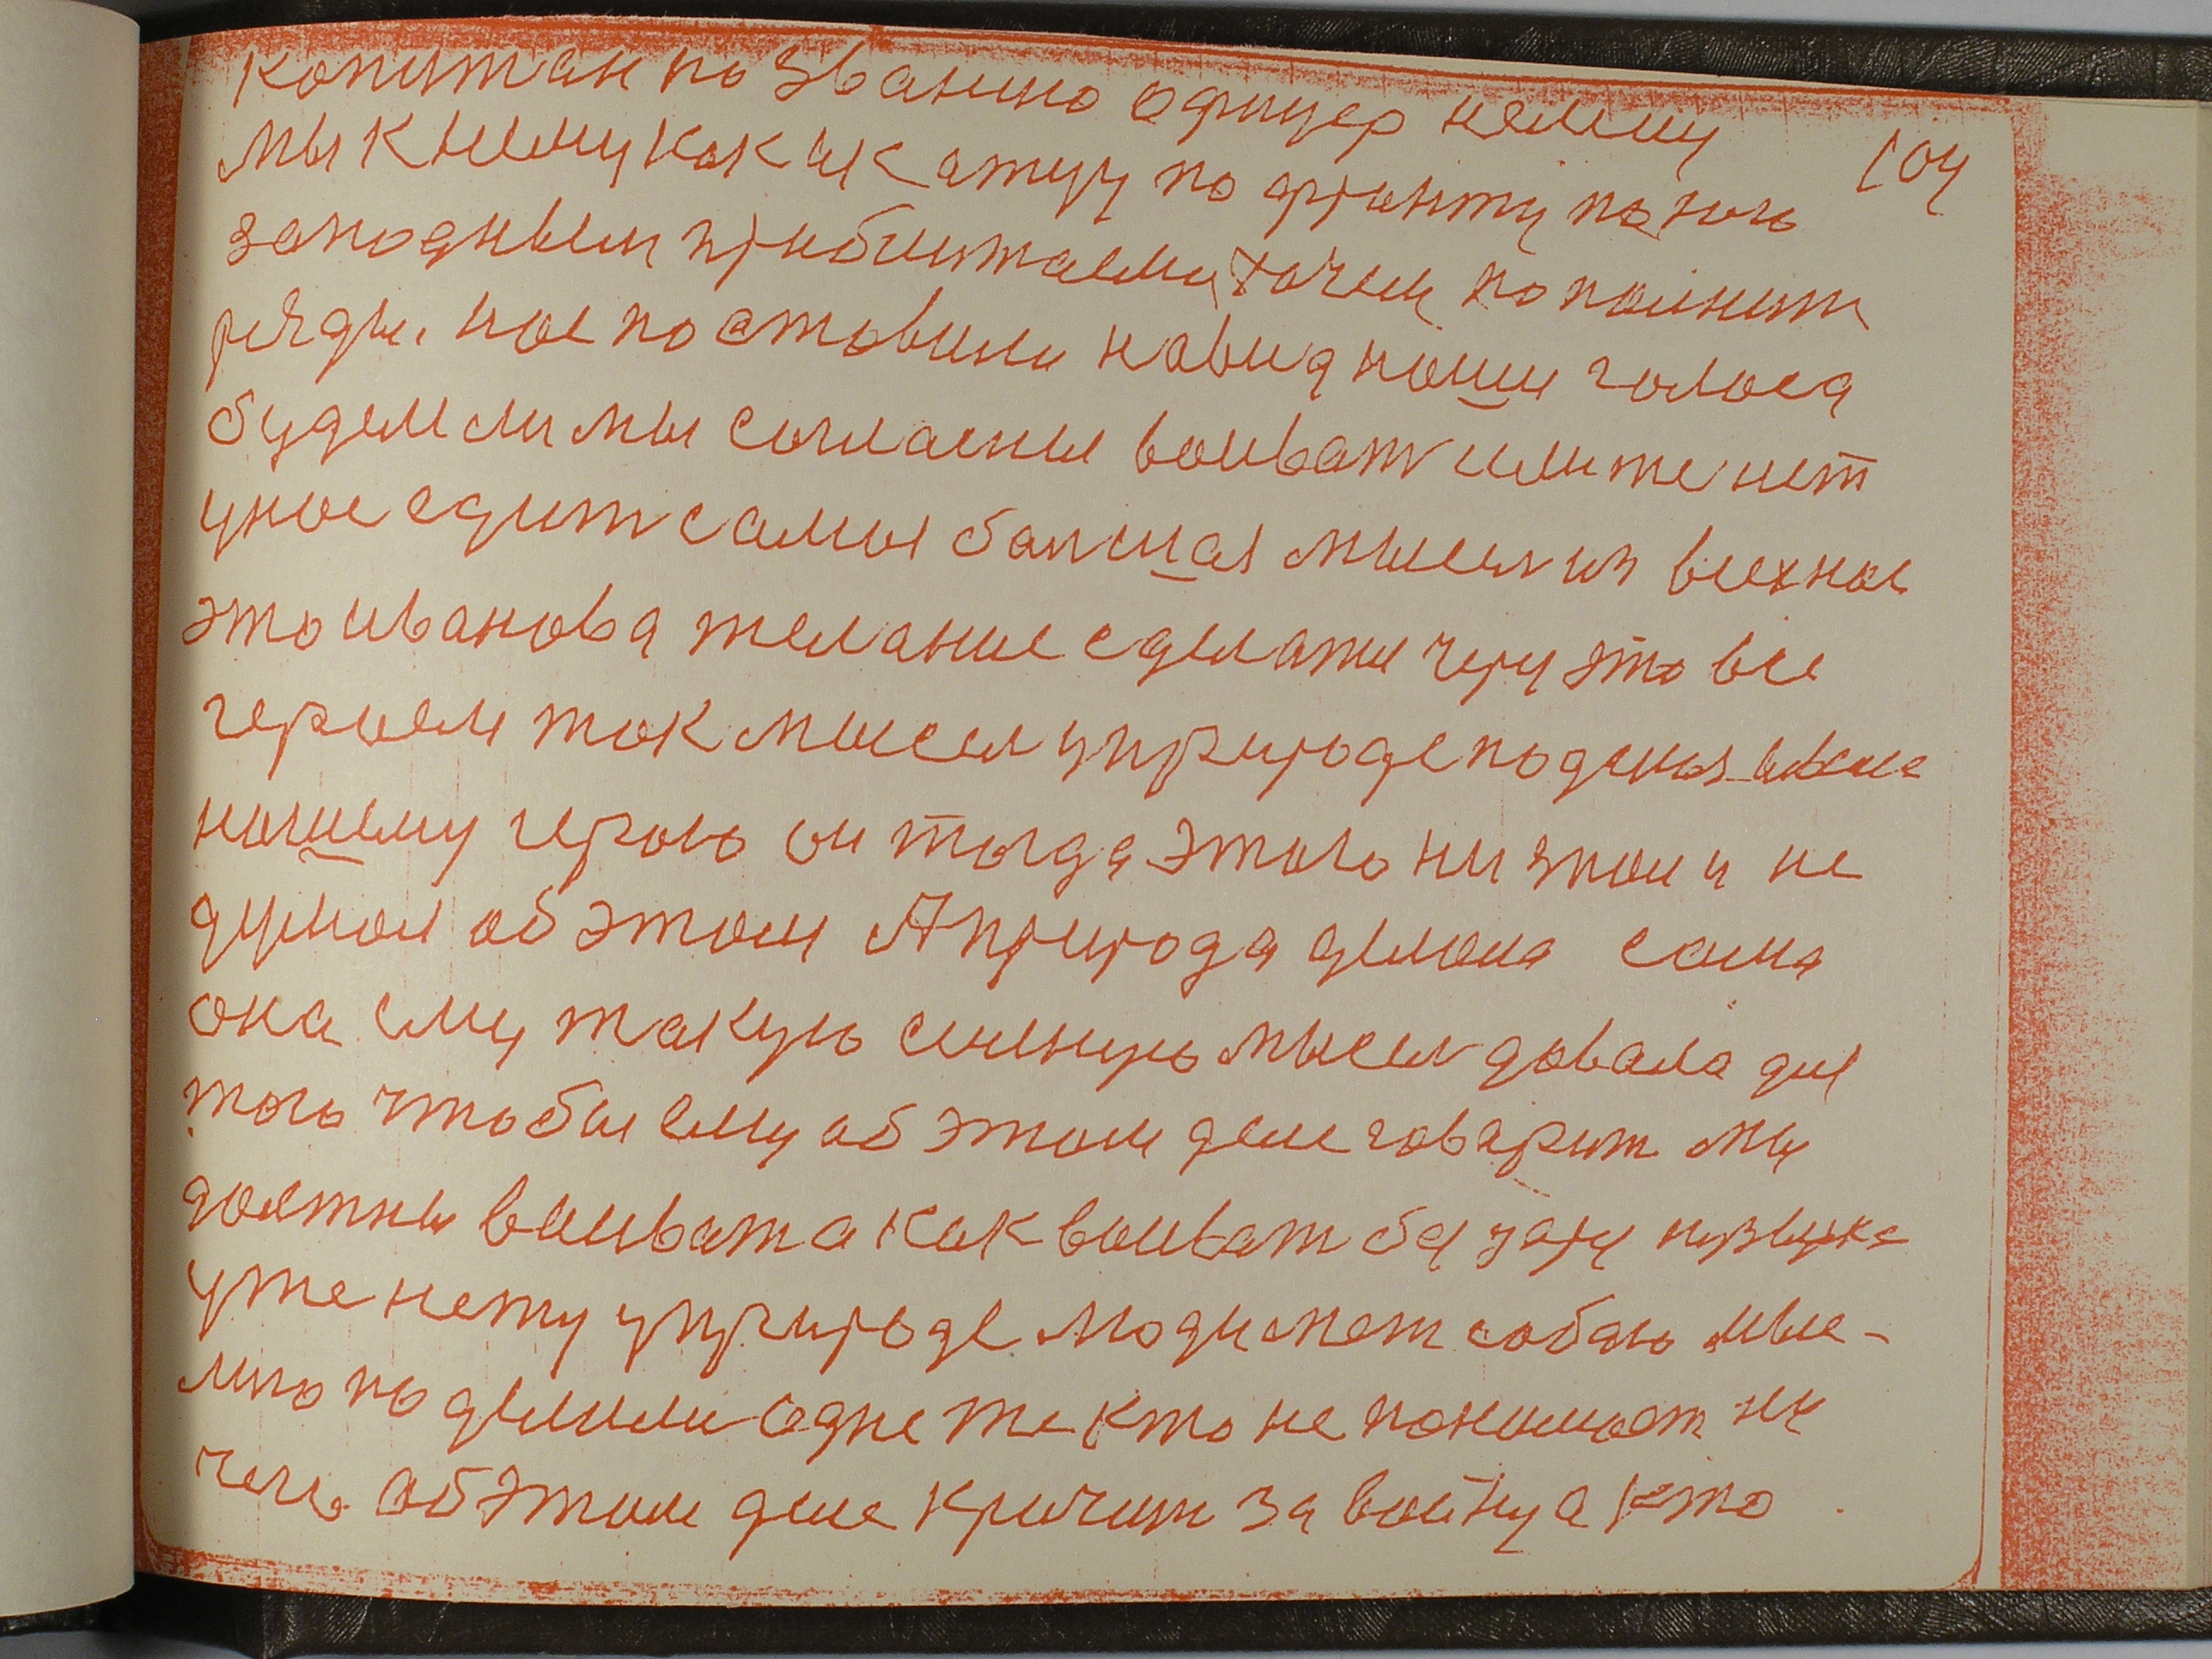 копитан по званию офицер
104
мы к нему как к атцу по фронту по
заподным прибитаем, хочем пополнит
ряды. нас поставили навид наши голоса
будем ли мы согласны воиват или же нет
унас едит самыя балшая мысел из всех нас
это иванова желание сделатся чериз это все
героем так мысел уприроде поданая
нашему герою он тогда этого ни знал и не
думал об этом А природа делала сама
она ему такую силную мысел давала для
того чтобы ему об этом деле говарит мы
должны воиват а как воиват
уже нету уприроде люди меж собою
мио поделили одне же кто не понимает ни
чего об этом деле кричит за войну а кто